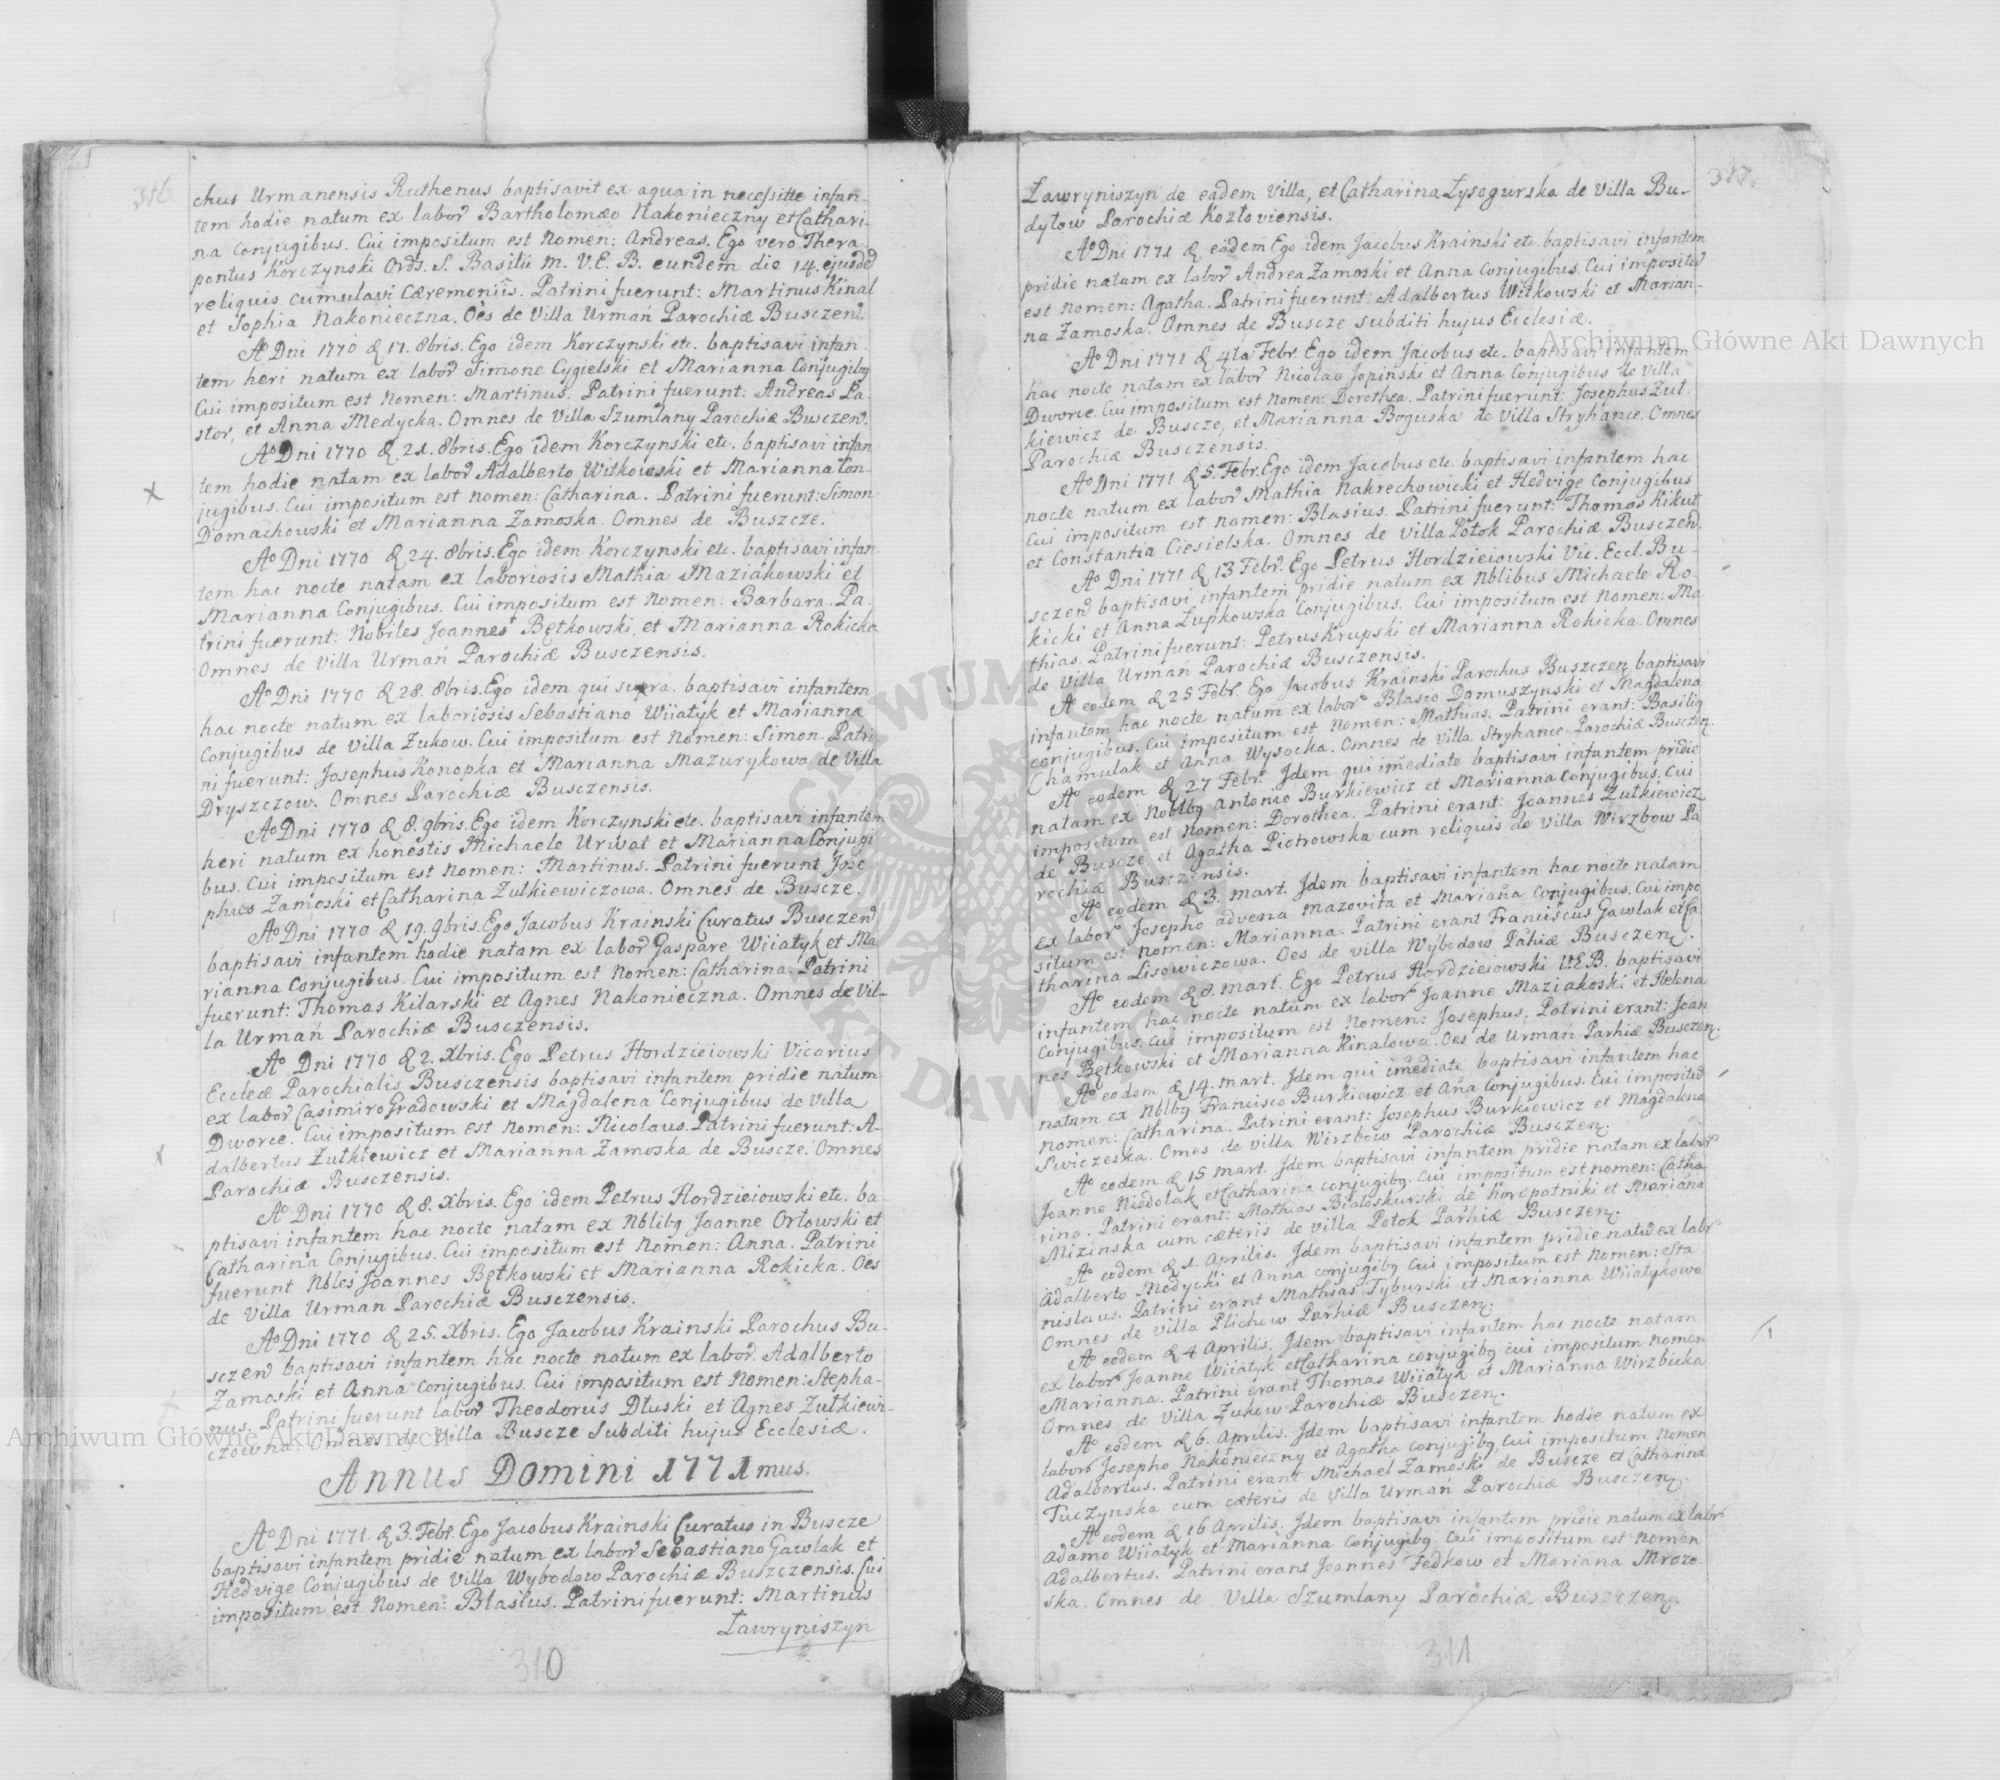 316
chus Urmanensis Ruthenus baptisavit ex aqua in necessitte infan-
tem hodie natum ex labor Bartholomæo Nakonieczny et Cathari-
na Conjugibus. Cui impositum est Nomen: Andreas. Ego vero Thera
pontus Korczynski Ords. S. Basilii M. V. E. B. eundem die 14. ejusded
reliquis cumulavi Cæremoniis. Patrini fuerunt: Martinus Kinal
et Sophia Nakonieczna. Oes de Villa Urmań Parochiæ Busczen.
Ao Dni 1770 d 17. 8bris. Ego idem Korczynski etc. baptisavi infan-
tem heri natum ex labor Simone Cygielski et Marianna Conjugibq
Cui impositum est Nomen: Martinus. Patrini fuerunt: Andreas Pa
stor, et Anna Medycka. Omnes de Villa Szumlany Parochiæ Busczen.
Ao Dni 1770 d 21. 8bris. Ego idem Korczynski etc. baptisavi infan
tem hodie natam ex labor Adalberto Witkowski et Marianna Con-
jugibus. Cui impositum est Nomen: Catharina. Patrini fuerunt: Simon
Domachowski et Marianna Zamoska. Omnes de Buszcze.
Ao Dni 1770 d 24. 8bris. Ego idem Korczynski etc. baptisavi infan
tem hac nocte natam ex laboriosis Mathia Maziakowski et
Marianna Conjugibus. Cui impositum est Nomen: Barbara. Pa
trini fuerunt: Nobiles Joannes Bętkowski, et Marianna Rokicka
Omnes de Villa Urmań Parochiæ Busczensis.
Ao Dni 1770 d 28. 8bris. Ego idem qui supra. baptisavi infantem
hac nocte natum ex laboriosis Sebastiano Wiiatyk et Marianna
Conjugibus de Villa Żukow. Cui impositum est Nomen: Simon. Patri
ni fuerunt: Josephus Konopka et Marianna Mazurykowa de Villa
Dryszczow. Omnes Parochiæ Busczensis.
Ao Dni 1770 d 8. 9bris. Ego idem Korczynski etc. baptisavi infantem
heri natum ex honestis Michaele Urwat et Marianna Conjugi
bus. Cui impositum est Nomen: Martinus. Patrini fuerunt Jose-
phus Zamoski et Catharina Zutkiewiczowa. Omnes de Buscze.
Ao Dni 1770 d 19. 9bris. Ego Jacobus Krainski Curatus Busczen
baptisavi infantem hodie natam ex labor Gaspare Wiiatyk et Ma
rianna Conjugibus. Cui impositum est Nomen: Catharina. Patrini
fuerunt: Thomas Kilarski et Agnes Nakonieczna. Omnes de Vil-
la Urmań Parochiæ Busczensis.
Ao Dni 1770 d 2. Xbris. Ego Petrus Hordzieiowski Vicarius
Eccleæ Parochialis Busczensis baptisavi infantem pridie natum
ex labor Casimiro Gradowski et Magdalena Conjugibus de Villa
Dworce. Cui impositum est Nomen: Nicolaus. Patrini fuerunt: A-
dalbertus Zutkiewicz et Marianna Zamoska de Buscze. Omnes
Parochiæ Busczensis.
Ao Dni 1770 d 8. Xbris. Ego idem Petrus Hordzieiowski etc. ba-
ptisavi infantem hac nocte natam ex Nblibq Joanne Orłowski et
Catharina Conjugibus. Cui impositum est Nomen: Anna. Patrini
fuerunt Nbles Joannes Bętkowski et Marianna Rokicka. Oes
de Villa Urman Parochiæ Busczensis.
Ao Dni 1770 d 25. Xbris. Ego Jacobus Krainski Parochus Bu-
sczen baptisavi infantem hac nocte natum ex labor. Adalberto
Zamoski et Anna Conjugibus. Cui impositum est Nomen: Stepha-
nus. Patrini fuerunt labor Theodorus Dłuski et Agnes Zutkiewi-
czowna. Omnes de Villa Buscze Subditi hujus Ecclesiæ.
Annus Domini 1771mus.
Ao Dni 1771. d 3. Febr. Ego Jacobus Krainski Curatus in Buscze
baptisavi infantem pridie natum ex labor Sebastiano Gawlak et
Hedvige Conjugibus de Villa Wybodow Parochiæ Buszczensis. Cui
impositum est Nomen: Blasius. Patrini fuerunt: Martinus
Ławryniszyn
310
317.
Ławryniszyn de eadem Villa, et Catharina Łysogurska de Villa Bu-
dyłow Parochiæ Kozłoviensis.
Ao Dni 1771 d eadem Ego idem Jacobus Krainski etc. baptisavi infantem
pridie natam ex labor Andrea Zamoski et Anna Conjugibus. Cui impositu
est Nomen: Agatha. Patrini fuerunt: Adalbertus Witkowski et Marian-
na Zamoska. Omnes de Buscze subditi hujus Ecclesiæ.
Ao Dni 1771 d 4ta Febr. Ego idem Jacobus etc. baptisavi infantem
hac nocte natam ex labor Nicolao Jopinski et Anna Conjugibus de Villa
Dworce. Cui impositum est Nomen: Dorothea. Patrini fuerunt: Josephus Zut
kiewicz de Buscze, et Marianna Boguska de Villa Stryhance. Omnes
Parochiæ Busczensis.
Ao Dni 1771 d 5. Febr. Ego idem Jacobus etc. baptisavi infantem hac
nocte natum ex labor Mathia Nakrechowicki et Hedvige Conjugibus
Cui impositum est Nomen: Blasius. Patrini fuerunt: Thomas Kikut
et Constantia Ciesielska. Omnes de Villa Potok Parochiæ Busczen.
Ao Dni 1771 d 13 Febr. Ego Petrus Hordzieiowski Vic. Eccl. Bu-
sczen baptisavi infantem pridie natum ex Nblibus Michaele Ro-
kicki et Anna Łupkowska Conjugibus. Cui impositum est Nomen: Ma
thias. Patrini fuerunt: Petrus Krupski et Marianna Rokicka. Omnes
de Villa Urmań Parochiæ Busczensis.
Ao eodem d 25 Febr. Ego Jacobus Krainski Parochus Buszczen baptisavi
infantem hac nocte natum ex labor Blasio Domuszynski et Magdalena
conjugibus. Cui impositum est Nomen: Mathias. Patrini erant: Basiliq
Chamulak et Anna Wysocka. Omnes de Villa Stryhance Parochiæ Busczen.
Ao eodem d 27 Febr. Idem qui imediate baptisavi infantem pridie
natam ex Noblbq Antonio Burkiewicz et Marianna Conjugibus. Cui
impositum est Nomen: Dorothea. Patrini erant: Joannes Zutkiewicz
de Buscze et Agatha Piotrowska cum reliquis de Villa Wirzbow Pa
rochiæ Busczensis.
Ao eodem d 3. mart. Idem baptisavi infantem hac nocte natam
ex labor Josepho advena Mazovita et Mariana Conjugibus. Cui impo
situm est Nomen: Marianna. Patrini erant Franciscus Gawlak et Ca
tharina Lisowiczowa. Oes de Villa Wybodow Pahiæ Busczen.
Ao eodem d 8. mart. Ego Petrus Hordzieiowski V.E.B. baptisavi
infantem hac nocte natum ex labor Joanne Maziakoski et Helena
Conjugibus. Cui impositum est Nomen: Josephus. Patrini erant: Joan
nes Bętkowski et Marianna Kinalowa. Oes de Urmań Parhiæ Busczen.
Ao eodem d 14. mart. Idem qui imediate baptisavi infantem hac
natam ex Nblbq Francisco Burkiewicz et Ana Conjugibus. Cui impositu
Nomen: Catharina. Patrini erant: Josephus Burkiewicz et Magdalena
Swiczeska. Omes de Villa Wirzbow Parochiæ Busczen.
Ao eodem d 15 mart. Idem baptisavi infantem pridie natam ex labor
Joanne Niedolak et Catharina conjugibq. Cui impositum est nomen: Catha
rina. Patrini erant: Mathias Białoskurski de Koropatniki et Mariana
Mizinska cum cæteris de Villa Potok Parhiæ Busczen.
Ao eodem d 1. Aprilis. Idem baptisavi infantem pridie natu ex labr
Adalberto Medycki et Anna conjugibq Cui impositum est Nomen: Sta
nislaus. Patrini erant Mathias Tyburski et Marianna Wiiatykowa
Omnes de Villa Plichow Parhiæ Busczen.
Ao eodem d 4 Aprilis. Idem baptisavi infantem hac nocte natam
ex labor Joanne Wiiatyk et Catharina conjugibq cui impositum Nomen
Marianna. Patrini erant Thomas Wiiatyk et Marianna Wirzbicka
Omnes de Villa Żukow Parochiæ Busczen.
Ao eodem d 6. Aprilis. Idem baptisavi infantem hodie natum ex
labor Josepho Nakonieczny et Agatha conjugibq, Cui impositum Nomen
Adalbertus. Patrini erant Michael Zamoski de Buscze et Catharina
Tuczynska cum cæteris de Villa Urmań Parochiæ Busczen.
Ao eodem d 16 Aprilis. Idem baptisavi infantem pridie natum ex labr
Adamo Wiiatyk et Marianna Conjugibq. Cui impositum est Nomen
Adalbertus. Patrini erant Joannes Fedkow et Mariana Mrozo
ska. Omnes de Villa Szumlany Parochiæ Buszczen.
311
Archiwum Główne Akt Dawnych
Archiwum Główne Akt Dawnych
ARCHIWUM GŁÓWNE AKT DAWNYCH